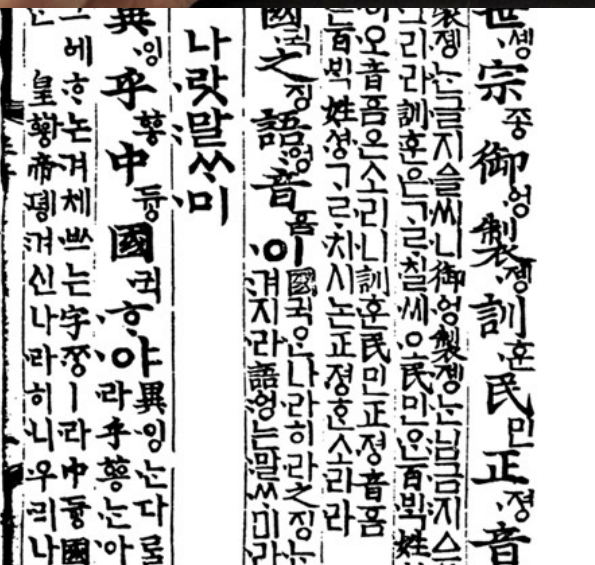 世솅宗종御엉製젱訓훈民민正졍音
製젱ᄂᆞᆫ글지ᅀᅳᆯ씨니御엉製젱ᄂᆞᆫ님금지ᅀᅳ
그리라訓훈은ᄀᆞᄅᆞ칠씨오民민ᄋᆞᆫ百ᄇᆡᆨ姓
이오音ᅙᅳᆷ은소리니訓훈民민正졍音ᅙᅳᆷ
은百ᄇᆡᆨ姓셩ᄀᆞᄅᆞ치시논正졍ᄒᆞᆫ소리라
國귁之징語ᅌᅥᆼ音ᅙᅳᆷ이
國귁ᄋᆞᆫ나라히라之징ᄂᆞᆫ
겨지라語ᅌᅥᆼ는말ᄊᆞ미라
나랏말ᄊᆞ미
異잉乎ᅘᅩᆼ中듕國귁ᄒᆞ야
異잉ᄂᆞᆫ다ᄅᆞᆯ
라乎ᅘᅩᆼᄂᆞᆫ아
그ᅌᅦᄒᆞ논겨체ᄡᅳ는字ᄍᆞᆼㅣ라中듕國
皇ᅘᅪᆼ帝뎽겨신나라히니우리나